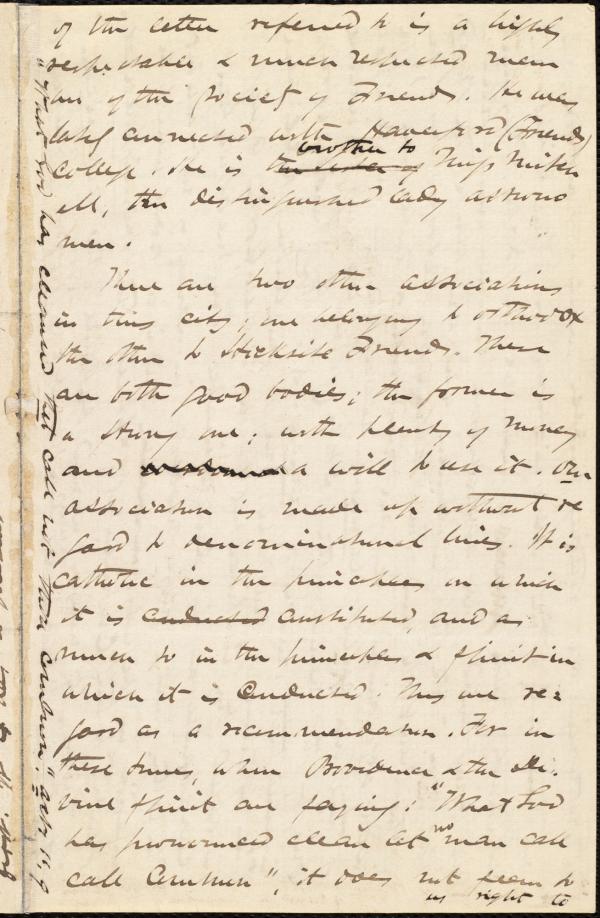 of the letter referred to is a highly
respectable & much respected mem
ber of the Society of Friends. He was
lately connected with Haverford (Friends)
College. He is the sister of brother to Miss Mitch
ell, the distinguished lady astrono
mer.
There are two other associations
in this city; one belonging to orthodox
the other to Hicksite Friends. These
are both good bodies; the former is
a strong one; with plenty of money
and a will to use it. Our
association is made up without re
gard to denominational lines. It is
catholic in the principles on which
it is conducted constituted, and as
much so in the principles & spirit in
which it is conducted. This we re=
gard as a recommendation. For in
these times, when Providence & the di-
vine spirit are saying: "What God
has pronounced clean let no man call
call common", it does not seem to
us right to
"What God has cleansed that call not thou common." Acts 15, 9